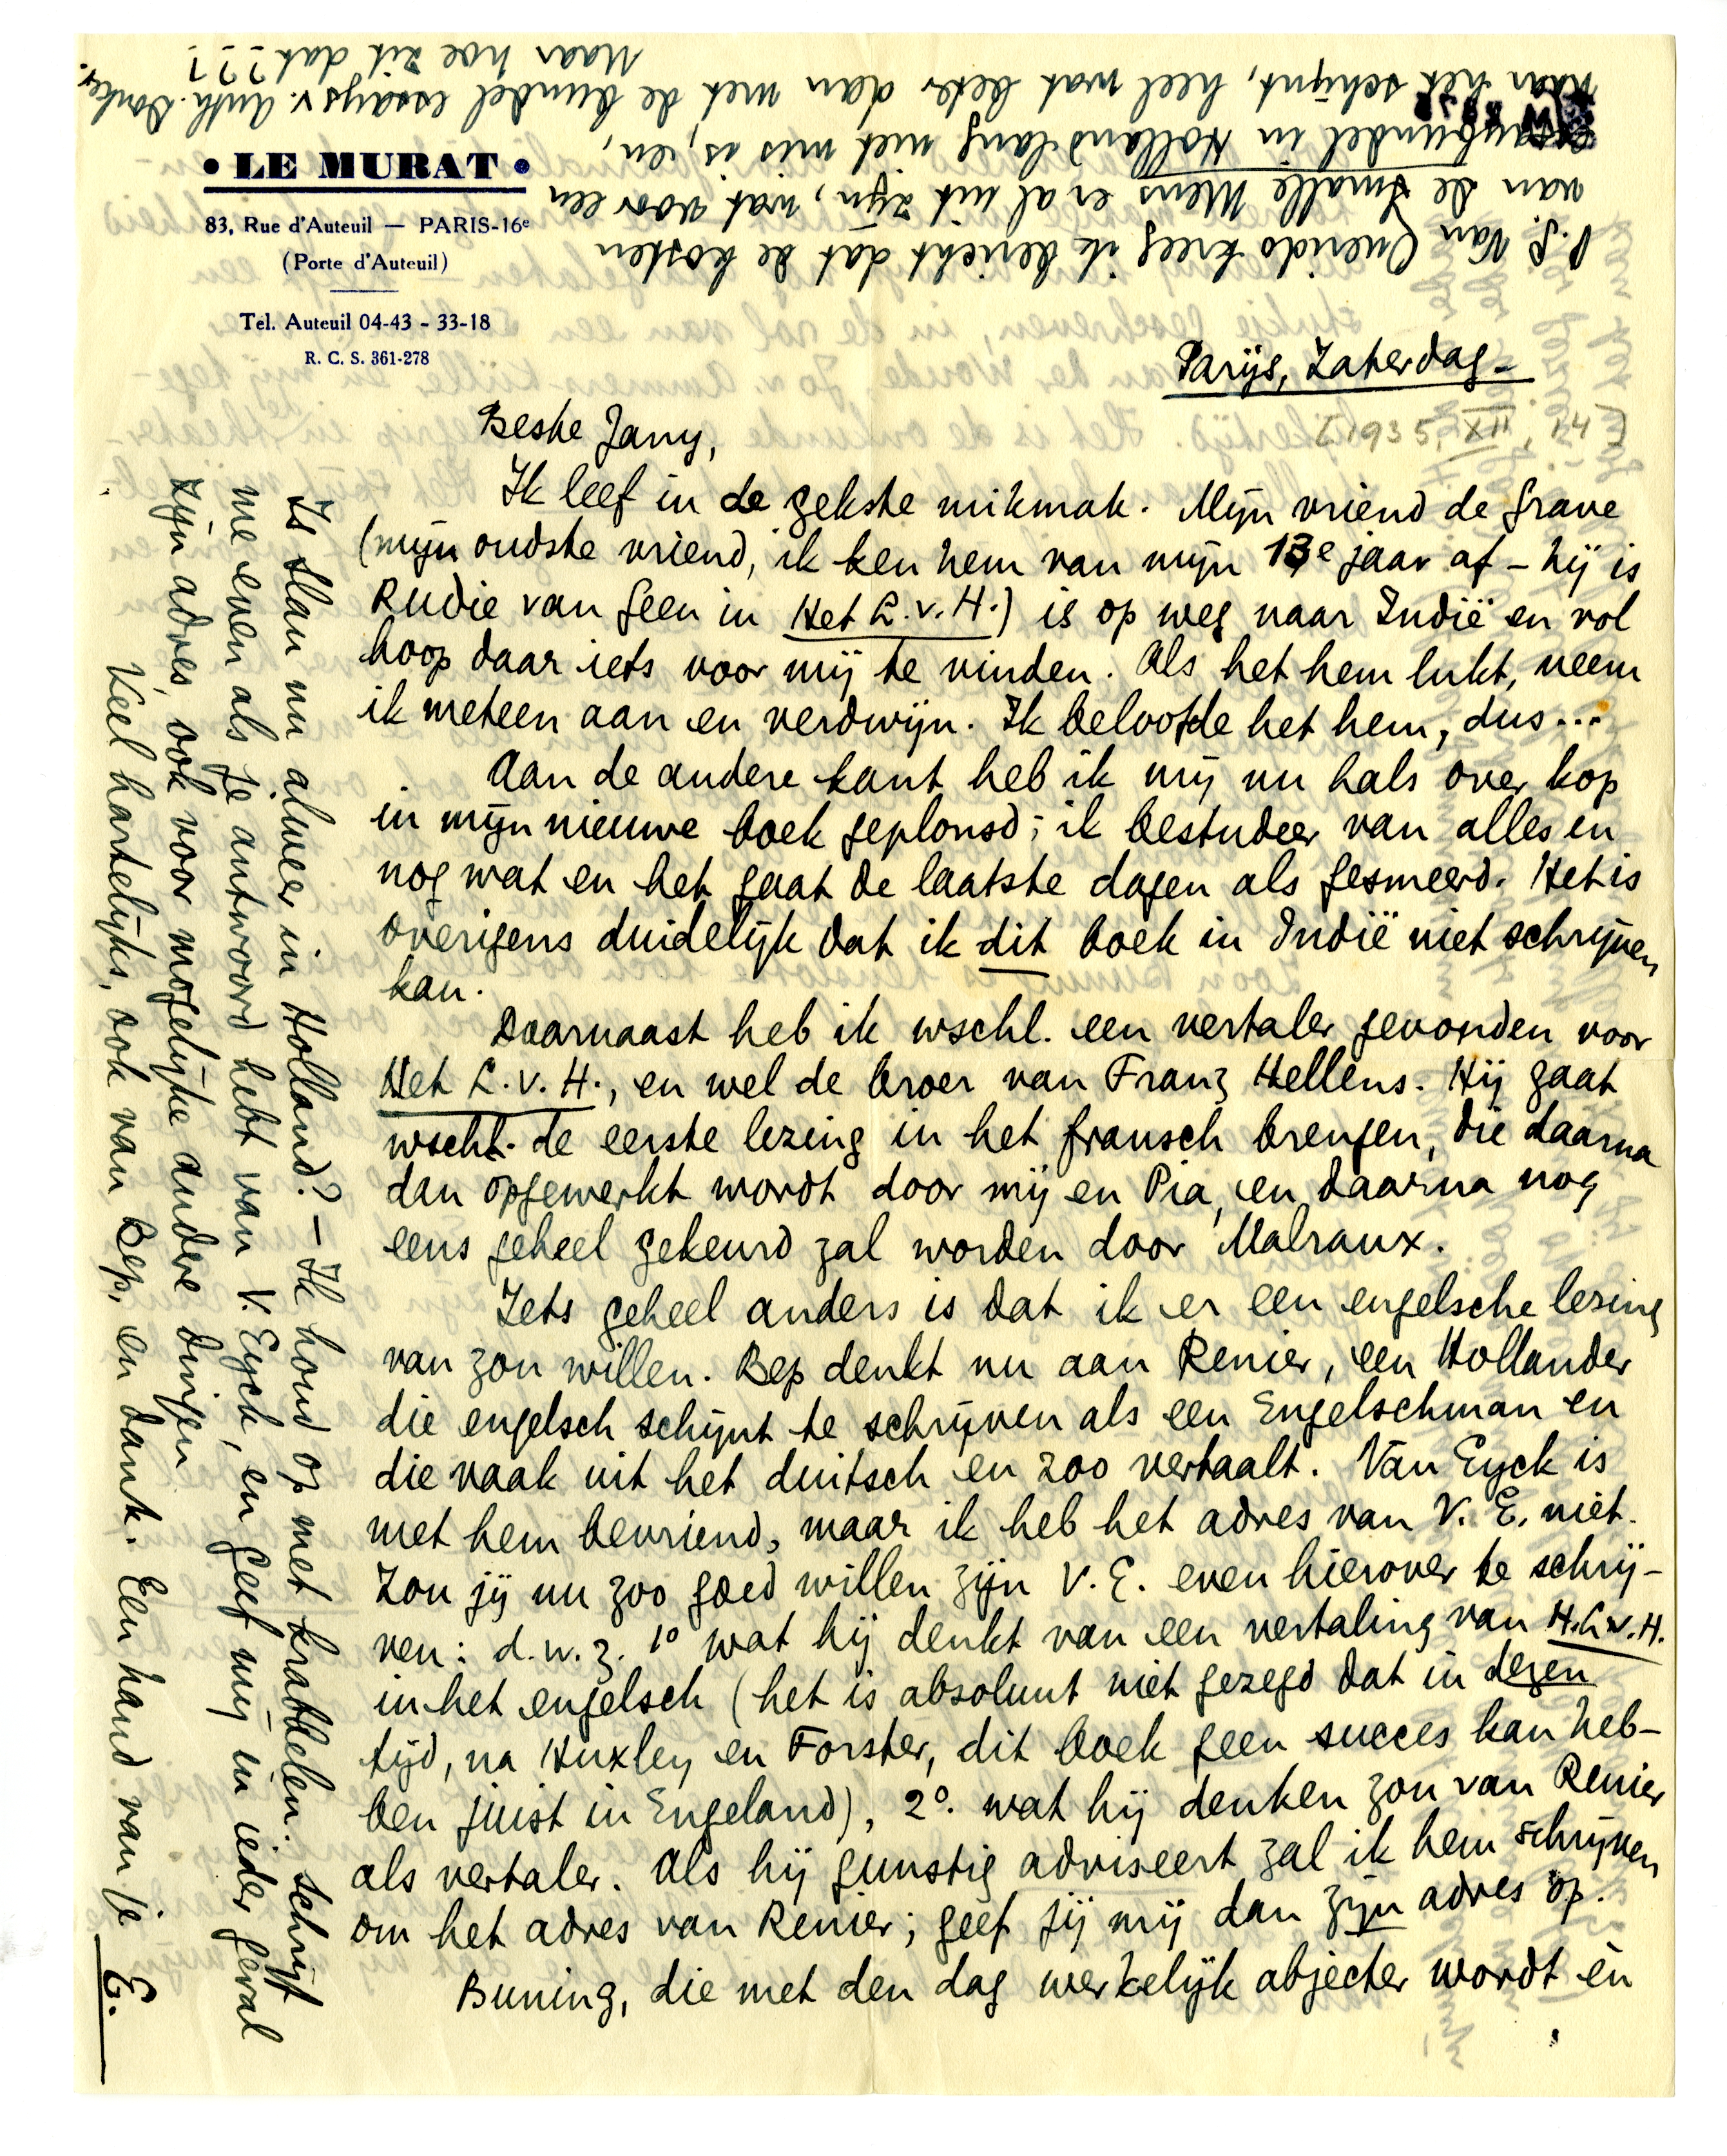 • LE MURAT •
83, Rue d'Auteuil — PARIS-16e
(Porte d'Auteuil)
Tel. Auteuil 04-43 - 33-18
R. C. S. 361-278
Parijs, Zaterdag.
[1935, XII, 14]
Beste Jany,
Ik leef in de gekste mikmak. Mijn vriend de Grave
(mijn oudste vriend, ik ken hem van mijn 13e jaar af – hij is
Rudie van Geen in Het L.v.H.) is op weg naar Indië en vol
hoop daar iets voor mij te vinden. Als het hem lukt, neem
ik meteen aan en verdwijn. Ik beloofde het hem, dus...
Aan de andere kant heb ik mij nu hals over kop
in mijn nieuwe boek geplonsd; ik bestudeer van alles en
nog wat en het gaat de laatste dagen als gesmeerd. Het is
overigens duidelijk dat ik dit boek in Indië niet schrijven
kan.
Daarnaast heb ik wschl. een vertaler gevonden voor
Het L.v.H., en wel de broer van Franz Hellens. Hij gaat
wschl. de eerste lezing in het fransch brengen, die daarna
dan opgewerkt wordt door mij en Pia, en daarna nog
eens geheel gekeurd zal worden door Malraux.
Iets geheel anders is dat ik er een engelsche lezing
van zou willen. Bep denkt nu aan Renier, een Hollander
die engelsch schijnt te schrijven als een Engelschman en
die vaak uit het duitsch en zoo vertaalt. Van Eyck is
met hem bevriend, maar ik heb het adres van V. E. niet.
Zou jij nu zoo goed willen zijn V. E. even hierover te schrij-
ven: d.w.z. 1o wat hij denkt van een vertaling van H.L.v.H.
in het engelsch (het is absoluut niet gezegd dat in dezen
tijd, na Huxley en Forster, dit boek geen succes kan heb-
ben juist in Engeland), 2o. wat hij denken zou van Renier
als vertaler. Als hij gunstig adviseert zal ik hem schrijven
om het adres van Renier; geef jij mij dan zijn adres op.
Buning, die met den dag werkelijk abjecter wordt èn
Is Slau nu alweer in Holland? – Ik houd op met krabbelen. Schrijf
me even als je antwoord hebt van V. Eyck, en geef mij in ieder geval
zijn adres, ook voor mogelijke andere dingen
Veel hartelijks, ook van Bep, en dank. Een hand van je
E.
P.S. Van Querido kreeg ik bericht dat de kosten
van de Smalle Mens er al uit zijn, wat voor een
essaybundel in Holland lang niet mis is, en,
naar het schijnt, heel wat beter dan met de bundel essays v. Anth. Donker.
Maar hoe zit dat???